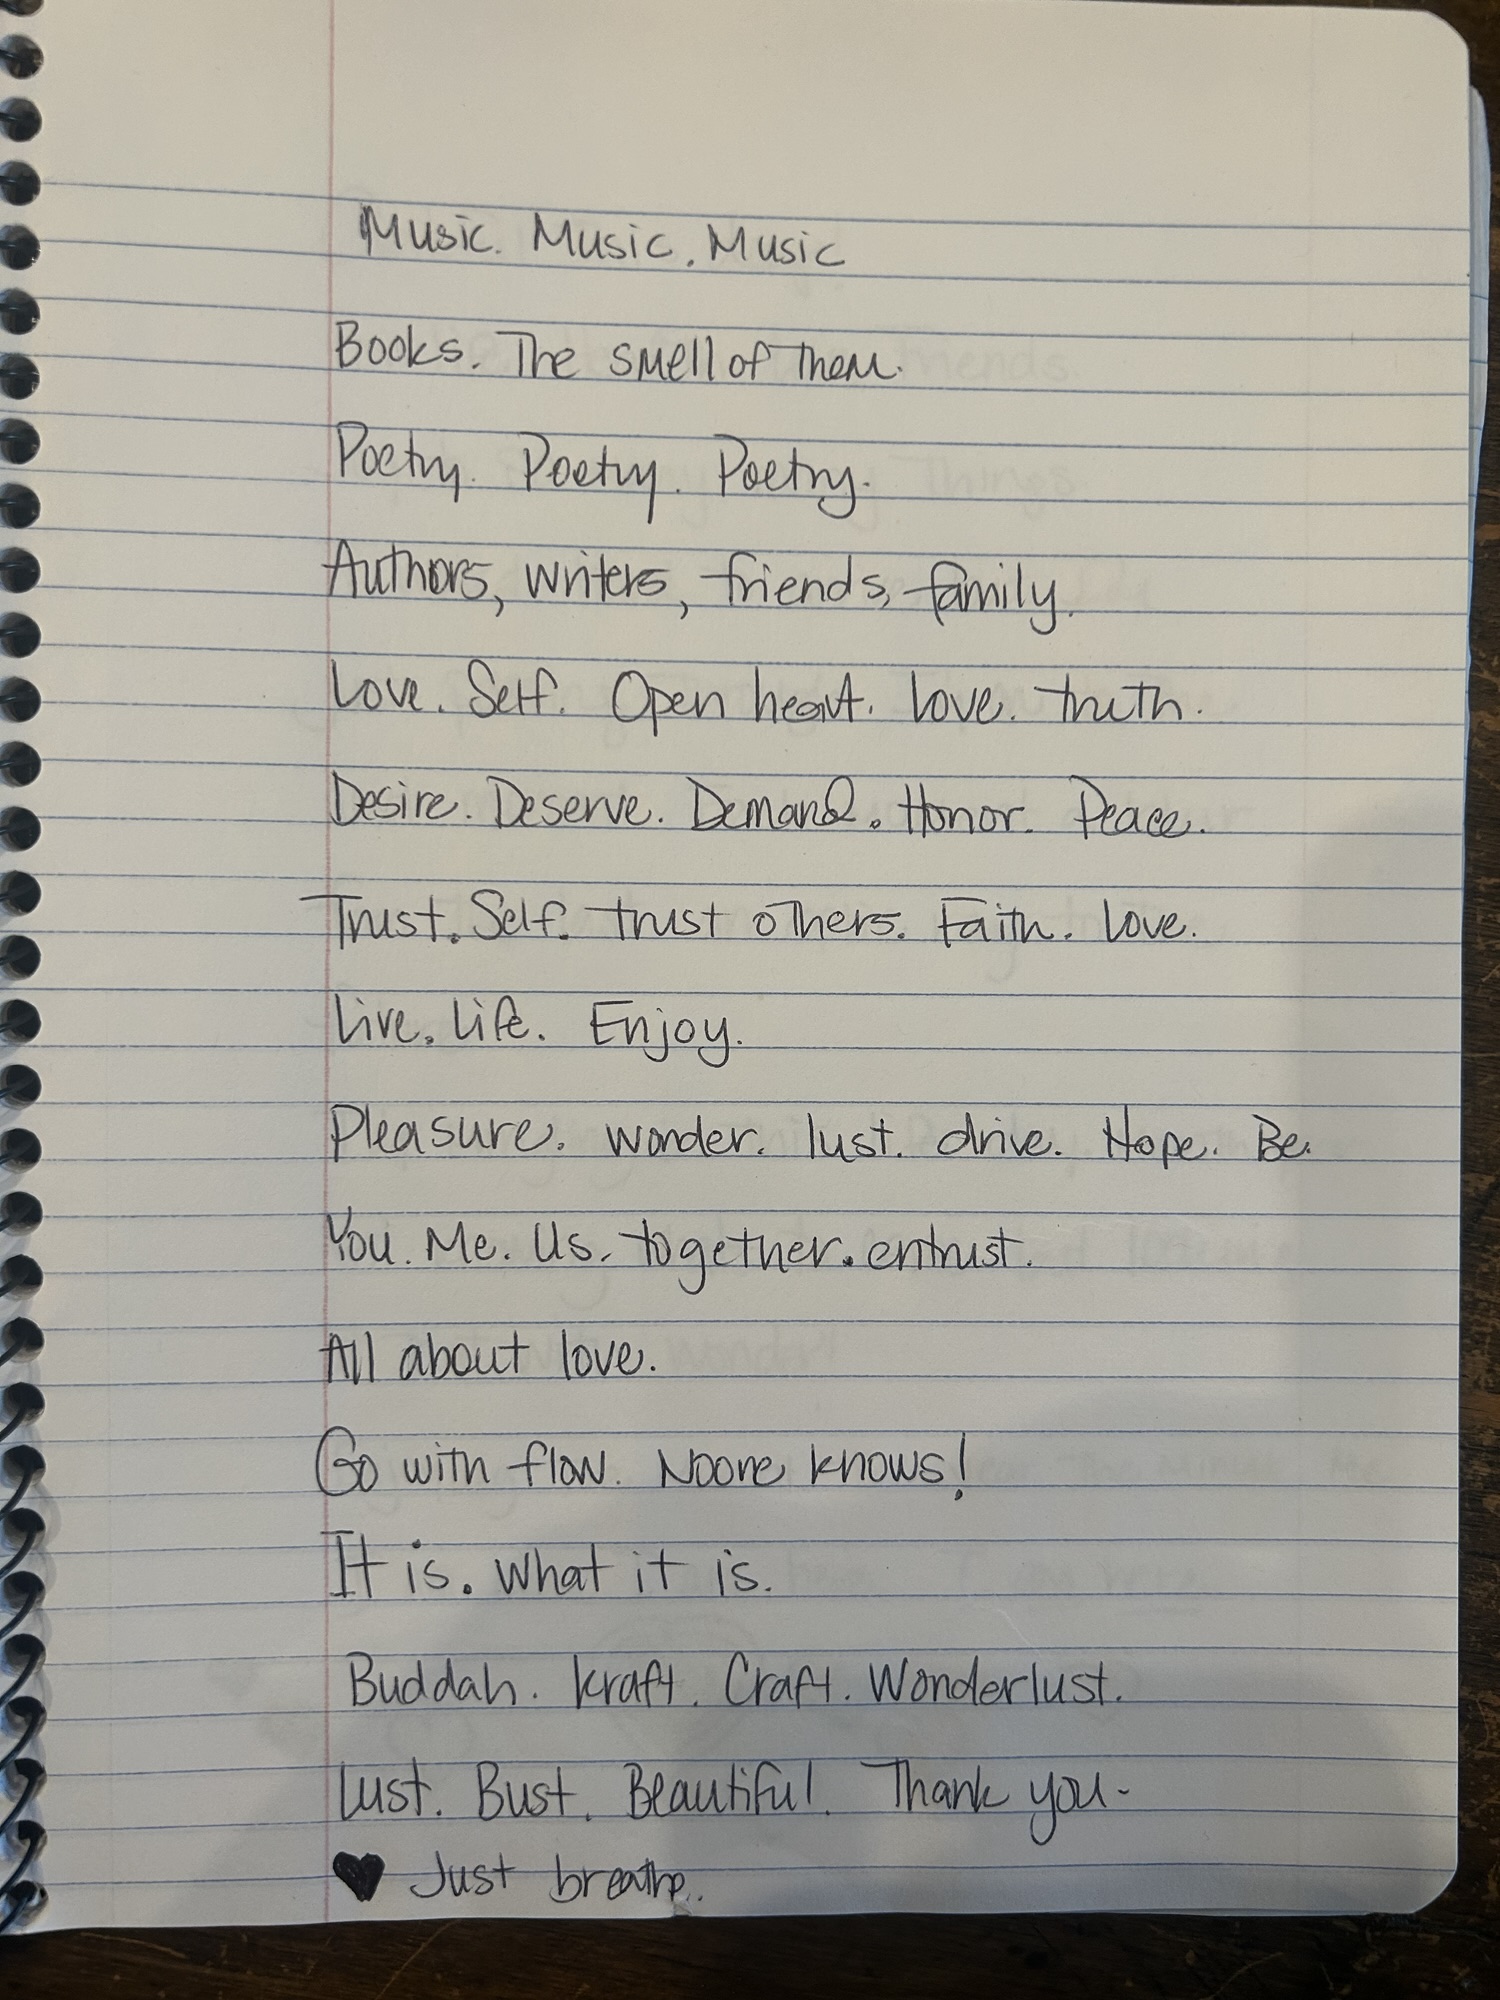 Music. Music. Music
Books. The smell of them.
Poetry. Poetry. Poetry.
Authors, writers, friends, family.
Love. Self. Open heart. love. truth.
Desire. Deserve. Demand. Honor. Peace.
Trust. Self. trust others. Faith. love.
Live. Life. Enjoy.
Pleasure. wonder. lust. drive. Hope. Be.
You. Me. Us. together. entrust.
All about love.
Go with flow. Noone knows!
It is. what it is.
Buddah. kraft. Craft. Wonderlust.
Lust. Bust. Beautiful. Thank you-
♥ Just breathe..